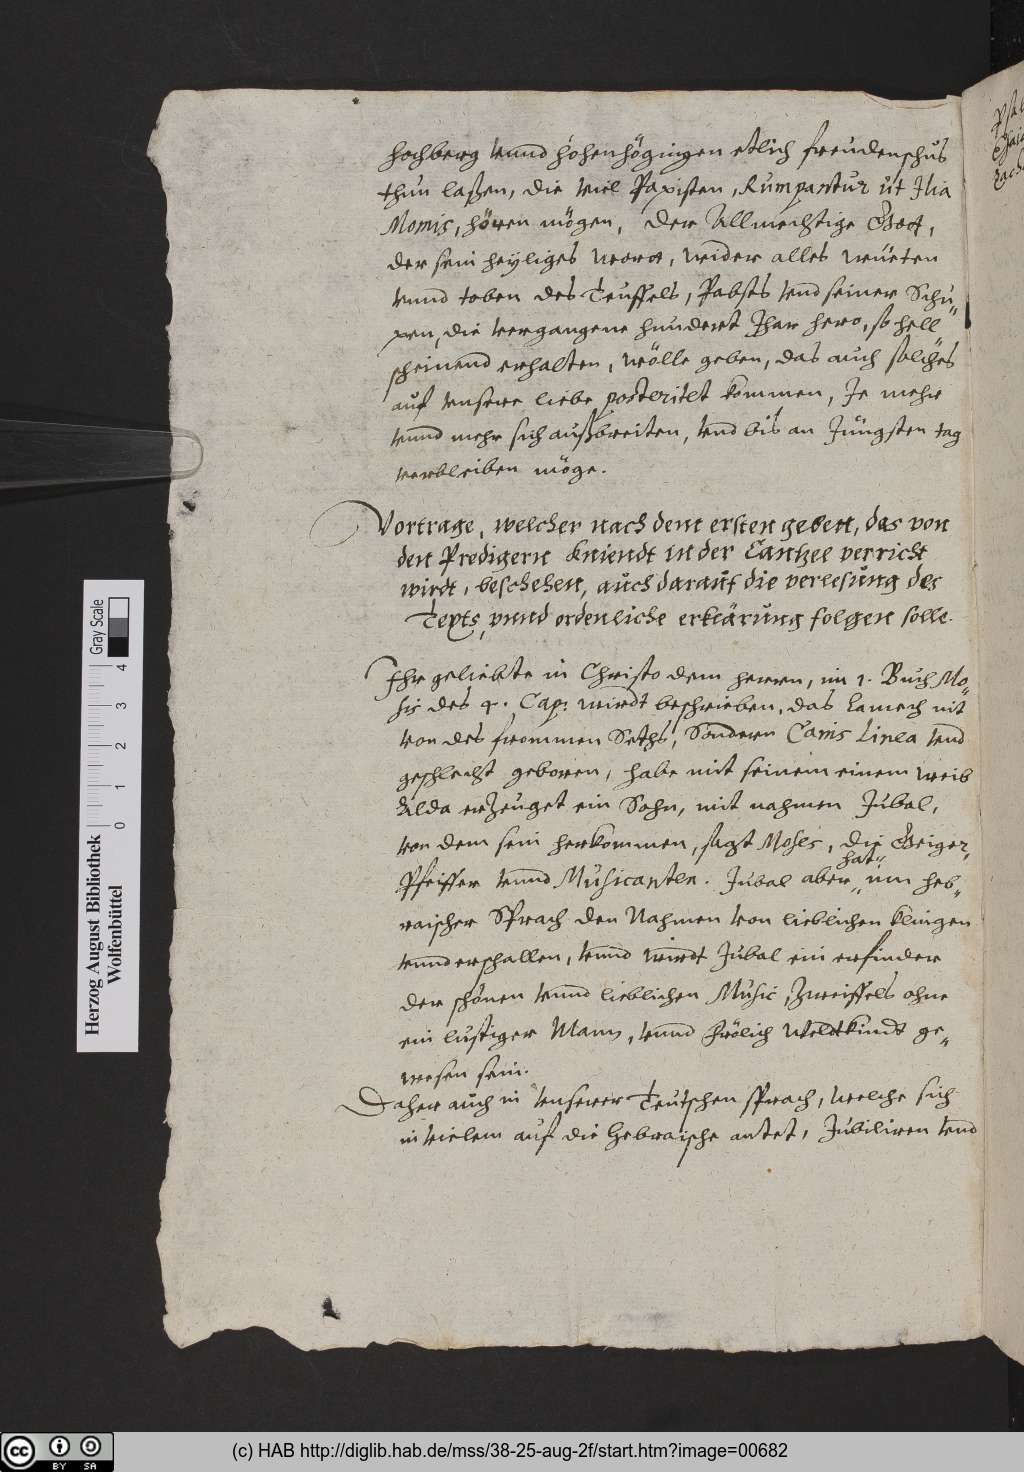 hochberg vnnd hohenhögingen etlich freudenschüs
thun laßen, die viel Papisten, Rumpantur ut Ilia
Momis, hören mögen, der Allmechtige Gott,
der sein heyliges wort, wider alles wüeten
vnnd toben des Teuffels, Pabsts vnd seiner Schu„
pen, die vergangene hundert Jhar hero, so hell
scheinend erhalten, wölle geben, das auch solches
auf vnsere liebe posteritet kommen, Je mehr
vnnd mehr sich außbreiten, vnd bis an Jüngsten tag
verbleiben möge.
Vortrage, welcher nach dem ersten gebett, das von
den Predigern kniendt in der Cantzel verricht
wirdt, beschehen, auch darauf die verlesung des
Texts, vnnd ordenliche erklärung folgen solle.
Ihr geliebte in Christo dem herren, im 1. Buch Mo„
sis des 4. Cap: wirdt beschrieben, das Lamech nit
von des frommen Seths, Sondern Cains Linea vnd
geschlecht geboren, habe mit seinem einem weib
Alda erzeuget ein Sohn, mit nahmen Jubal,
von dem sein herkommen, sagt Moses, die Geiger„
Pfeiffer vnnd Musicanten. Jubal aber „ um heb„
hat„
raischer Sprach den Nahmen von lieblichen klingen
vnnd erschallen, vnnd wirdt Jubal ein erfinder
der schönen vnnd lieblichen Music, Zweiffels ohne
ein lustiger Mann, vnnd frölich Weltkindt ge„
wesen sein.
Daher auch in vnserer Teutschen sprach, welche sich
in vielem auf die Hebraische antet, Jubiliren vnd
Herzog August Bibliothek
Wolfenbüttel
Gray Scale
0 1 2 3 4
(c) HAB http://diglib.hab.de/mss/38-25-aug-2f/start.htm?image=00682
cc BY SA